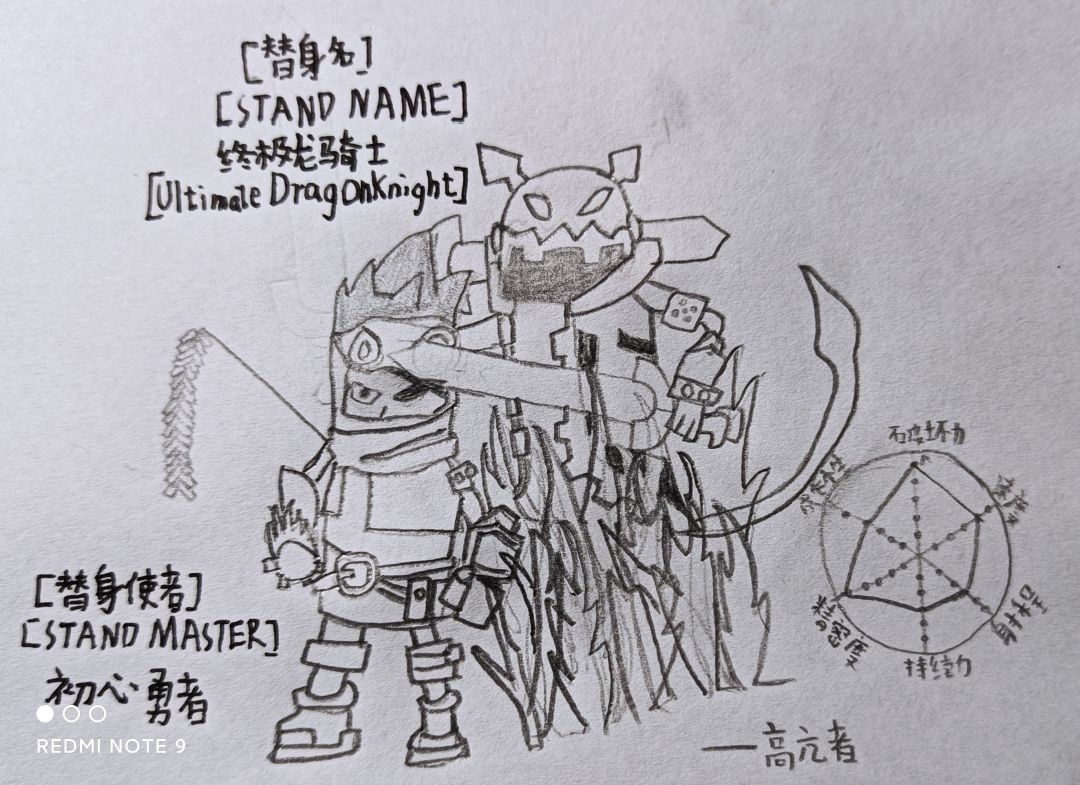 [替身名]
[STAND NAME]
终极龙骑士
[Ultimate DragonKnight]
破坏力
速度
射程
持续力
精密度
成长性
[替身使者]
[STAND MASTER]
初心勇者
REDMI NOTE 9
——高亢者